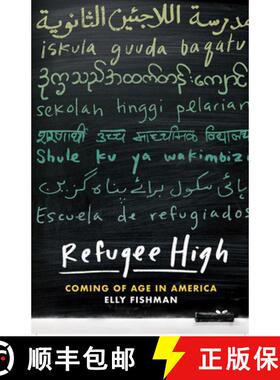 مدرسة اللاجئين الثانوية
iskula guuda baqatu
ဒုက္ခသည်အထက်တန်းကျောင်း
sekolah tinggi pelarian
शरणार्थी उच्च माध्यमिक विद्यालय
Shule ku ya wakimbizi
ہائی سکول برائے پناہ گزین
Escuela de refugiados
Refugee High
COMING OF AGE IN AMERICA
ELLY FISHMAN
全店顺丰 正规授权
顺丰包邮 正版保障